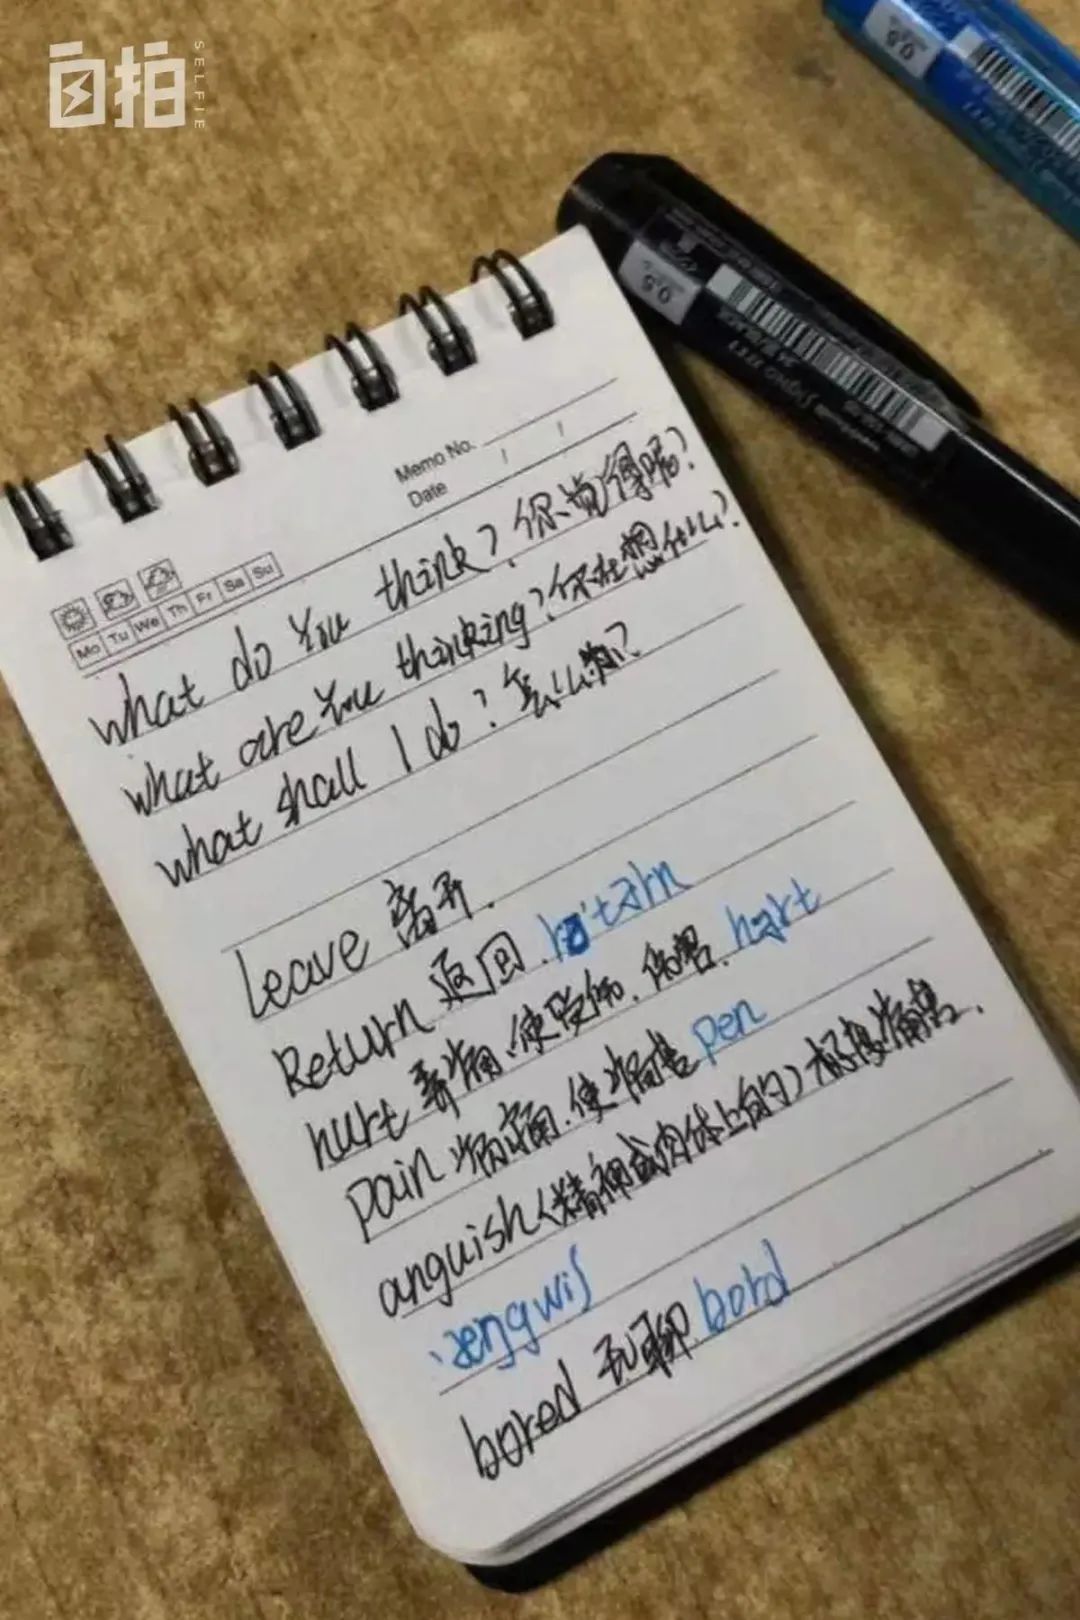 自拍
SELFIE
0.5
0.5
Memo No.
Date / /
Mo Tu We Th Fr Sa Su
what do You think? 你觉得呢?
what are You thinking? 你在想什么?
what shall I do? 怎么办?
Leave 离开.
Return 返回. rɪ'tɜrn
hurt 弄痛、使受伤. 伤害. hɜrt
pain 病痛. 使痛苦 pen
anguish (精神或肉体上的) 极度痛苦.
'æŋgwiʃ
bored 无聊 bord